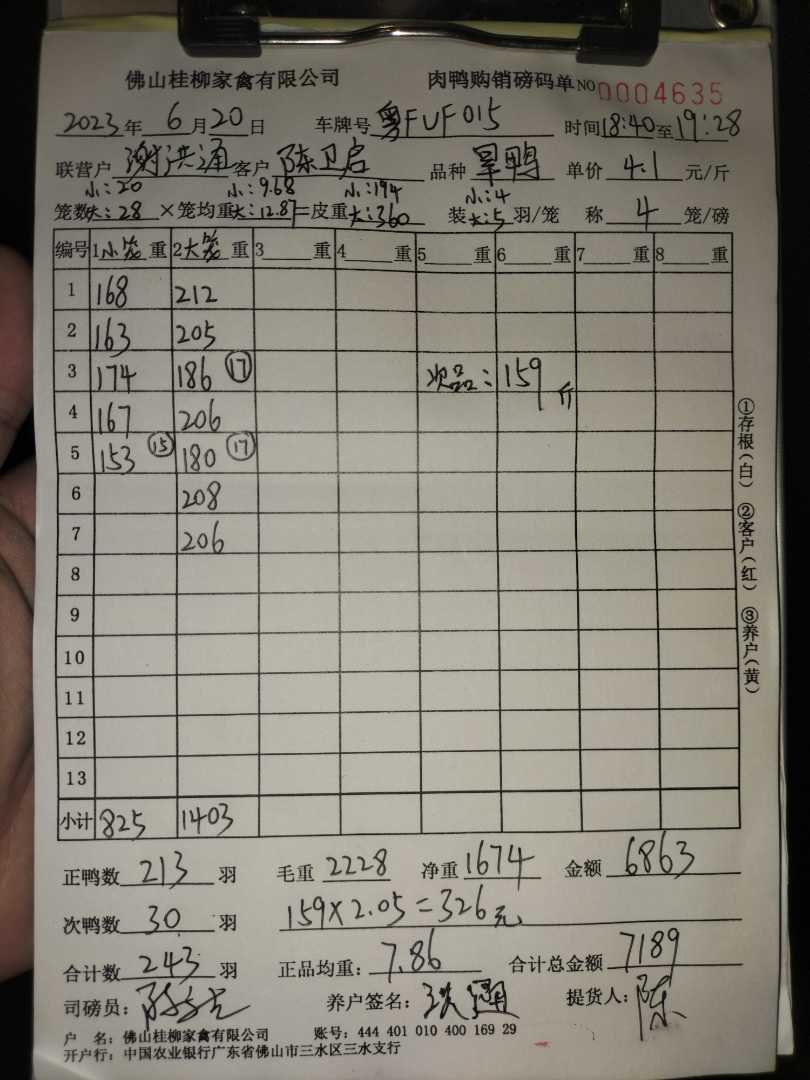 佛山桂柳家禽有限公司 肉鸭购销磅码单 NO 0004635
2023年 6月20日 车牌号 粤FUF015 时间18:40至19:28
联营户 谢洪通 客户 陈卫启 品种 旱鸭 单价 4.1 元/斤
小:20 小:9.68 小:194 小:4
笼数大:28 ×笼均重大:12.87=皮重大:360 装大:5羽/笼 称 4 笼/磅
编号 1小笼重 2大笼重 3 重 4 重 5 重 6 重 7 重 8 重
1 168 212
2 163 205
3 174 186 ⑰ 次品:159斤
4 167 206
5 153 ⑮ 180 ⑰
6 208
7 206
8
9
10
11
12
13
小计 825 1403
①存根(白) ②客户(红) ③养户(黄)
正鸭数 213 羽 毛重 2228 净重 1674 金额 6863
次鸭数 30 羽 159×2.05=326元
合计数 243 羽 正品均重: 7.86 合计总金额 7189
司磅员: 养户签名: 洪通 提货人: 陈
户 名: 佛山桂柳家禽有限公司 账号: 444 401 010 400 169 29
开户行: 中国农业银行广东省佛山市三水区三水支行